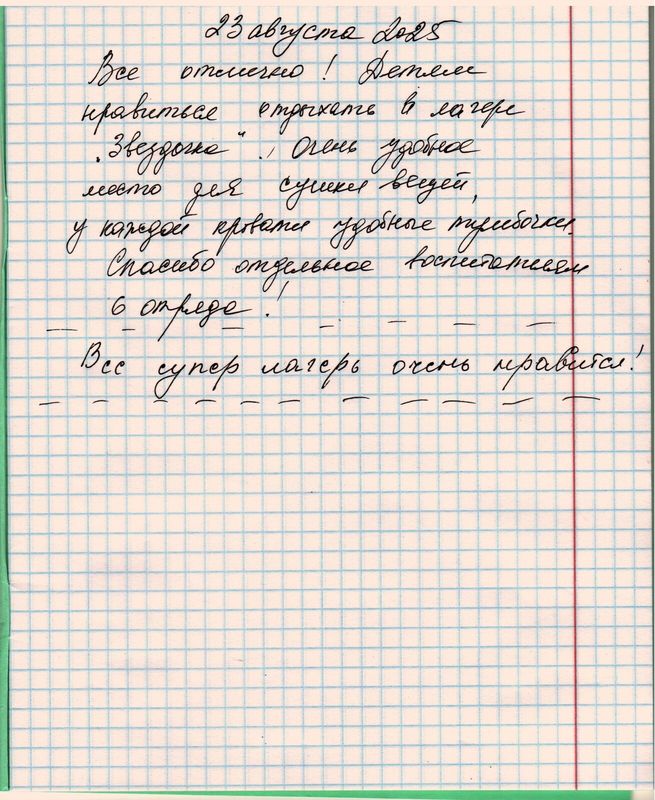 23 августа 2025
Все отлично! Детям
нравиться отдыхать в лагере
"Звездочка"! Очень удобное
место для сушки вещей,
у каждой кровати удобные тумбочки.
Спасибо отдельное воспитателям
6 отряда!
Все супер лагерь очень нравится!